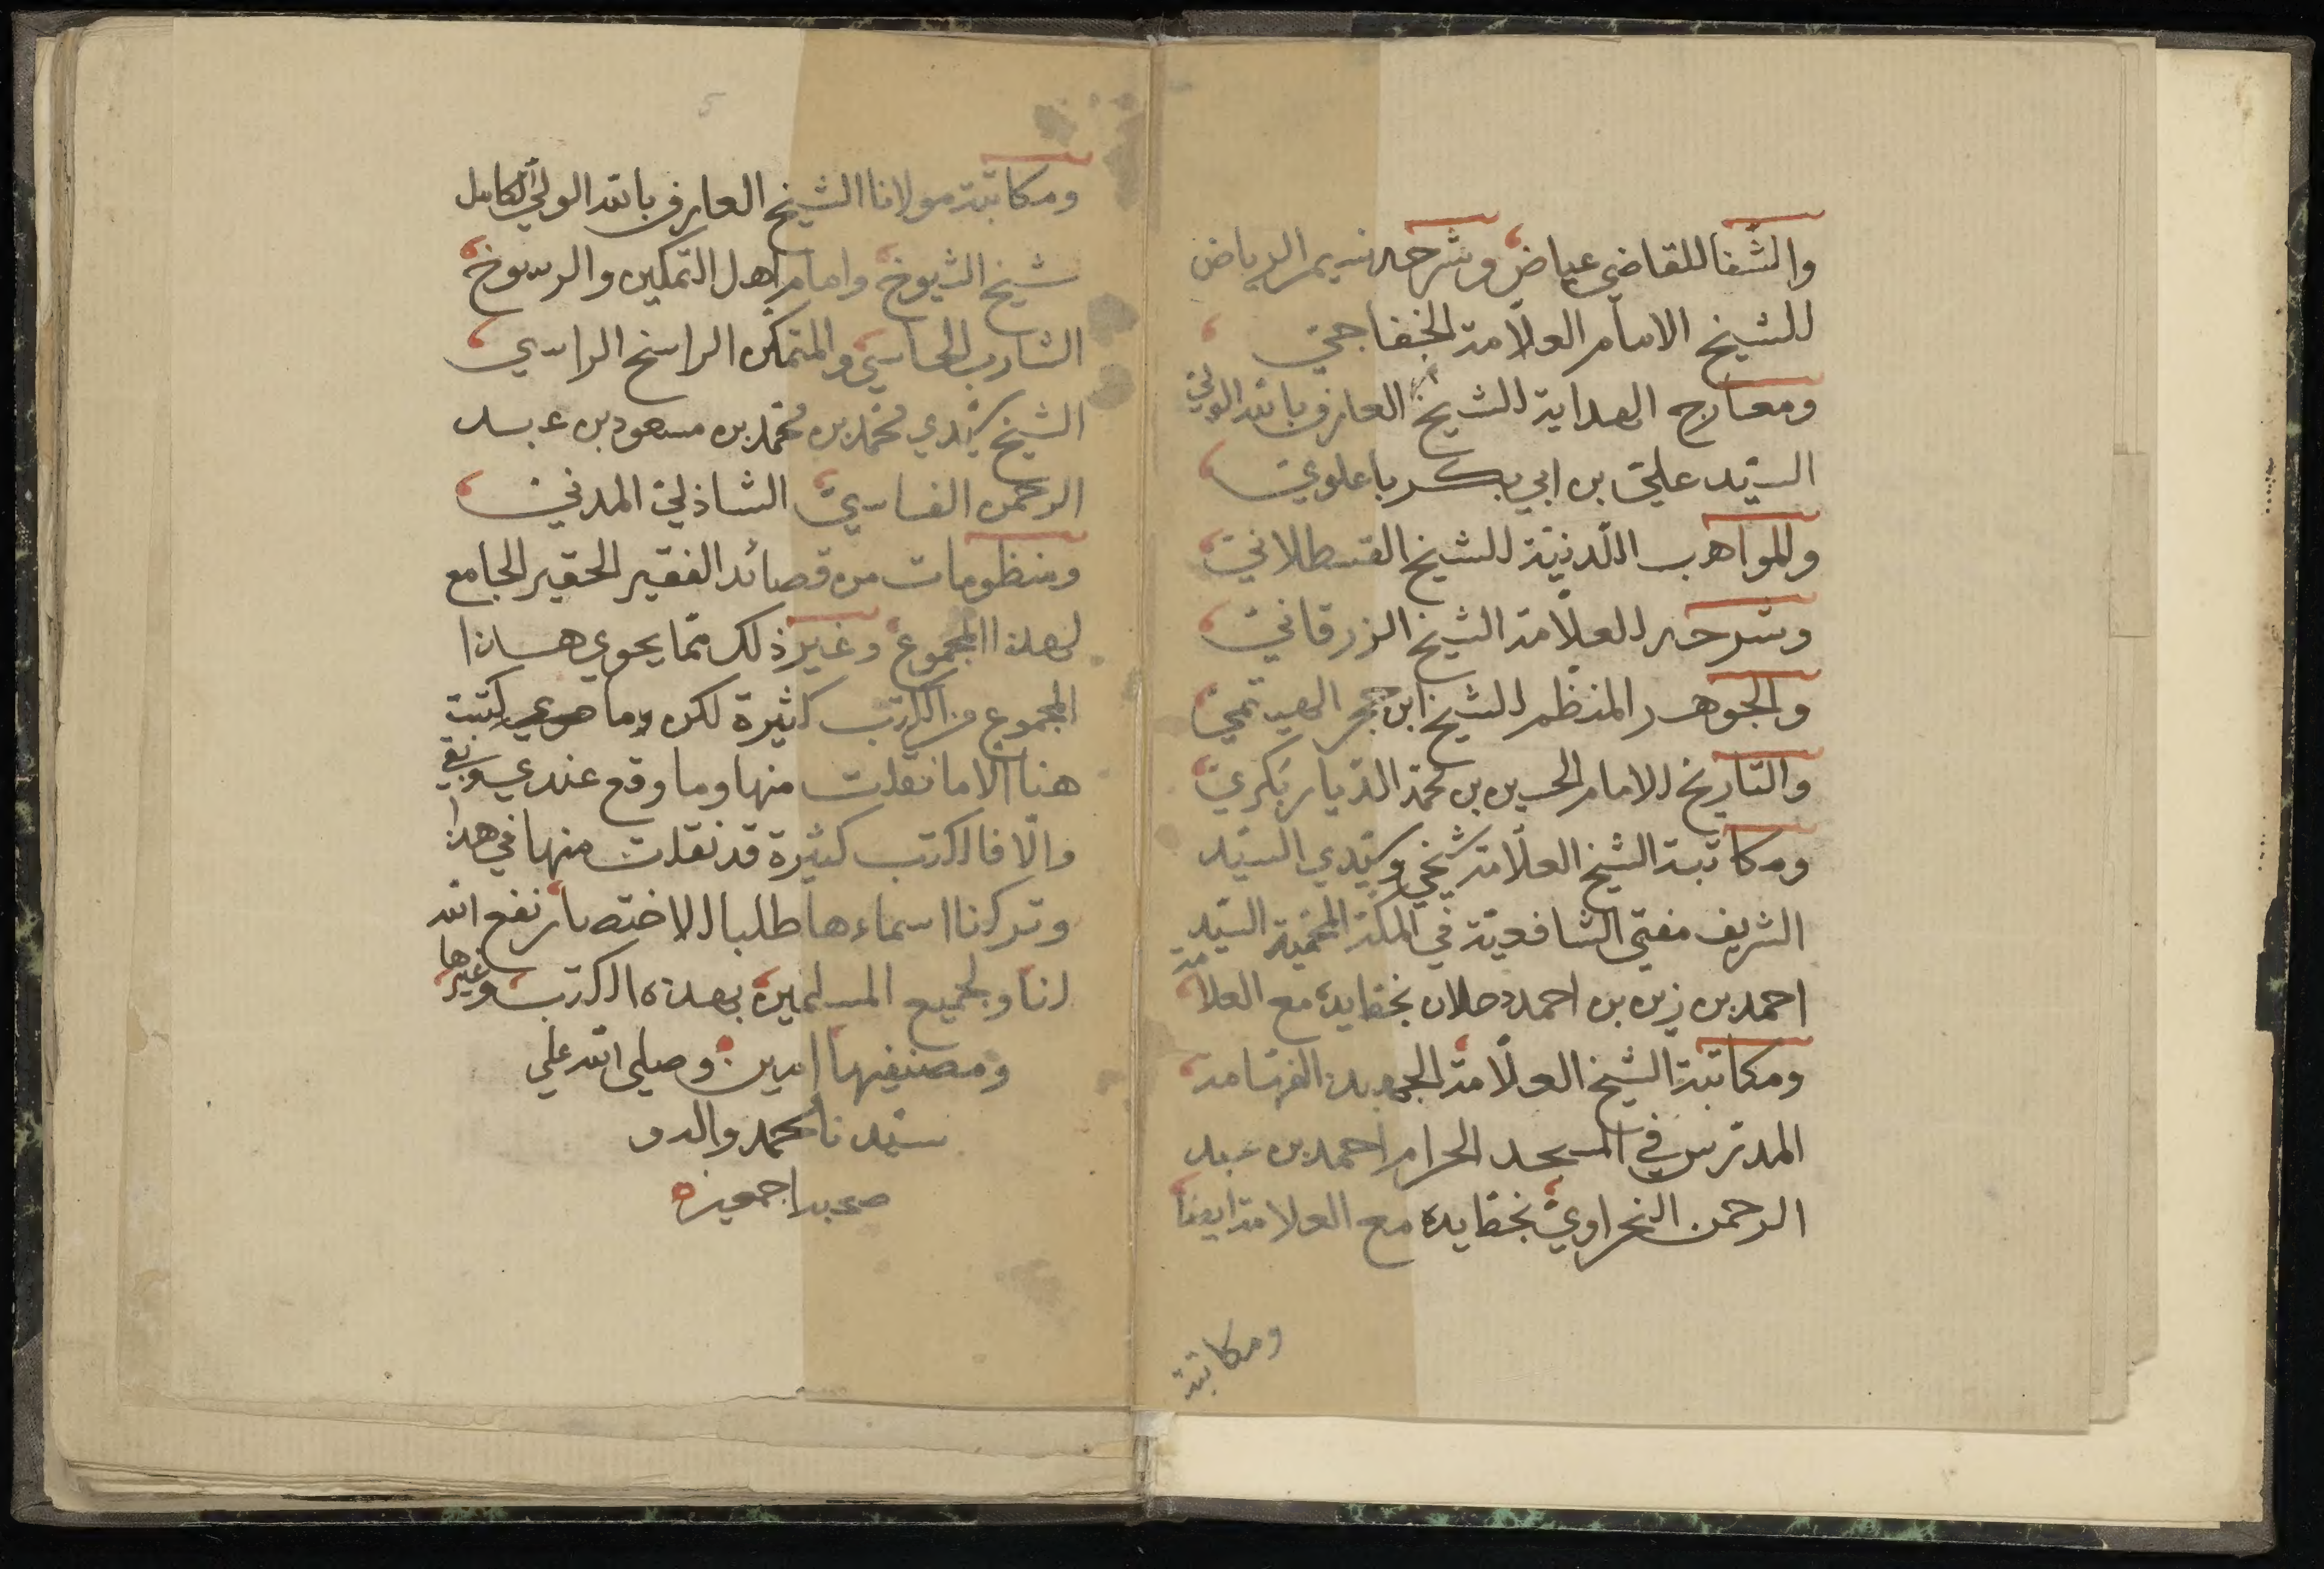 والشفا للقاضي عياض وشرحه نسيم الرياض
للشيخ الامام العلامة الخفاجي
ومعارج الهداية للشيخ العارف بالله الولي
السيد علي بن ابي بكر باعلوي
والمواهب اللدنية للشيخ القسطلاني
وشرحه للعلامة الشيخ الزرقاني
والجوهر المنظم للشيخ ابن حجر الهيتمي
والتاريخ للامام الحسين بن محمد الديار بكري
ومكاتبة الشيخ العلامة شيخي وسيدي السيد
الشريف مفتي الشافعية في المكة المحمية السيد
احمد بن زين بن احمد دحلان بخط يده مع العلامة
ومكاتبة الشيخ العلامة الجهبذ الفهامة
المدرس في المسجد الحرام احمد بن عبد
الرحمن النحراوي بخط يده مع العلامة ايضا
ومكاتبة
ومكاتبة مولانا الشيخ العارف بالله الولي الكامل
شيخ الشيوخ وامام اهل التمكين والرسوخ
الشارب الحاسي والمتمكن الراسخ الراسي
الشيخ سيدي محمد بن محمد بن مسعود بن عبد
الرحمن الفاسي الشاذلي المدني
ومنظومات من قصائد الفقير الحقير الجامع
لهذا المجموع وغير ذلك مما يحوي هذا
المجموع من الكتب كثيرة لكن وما كتبت
هنا الا ما نقلت منها وما وقع عندي وبقي
والا فالكتب كثيرة قد نقلت منها في هذا
وتركنا اسماءها طلبا للاختصار نفع الله
لنا ولجميع المسلمين بهذه الكتب وغيرها
ومصنفيها امين وصلى الله على
سيدنا محمد واله و
صحبه اجمعين